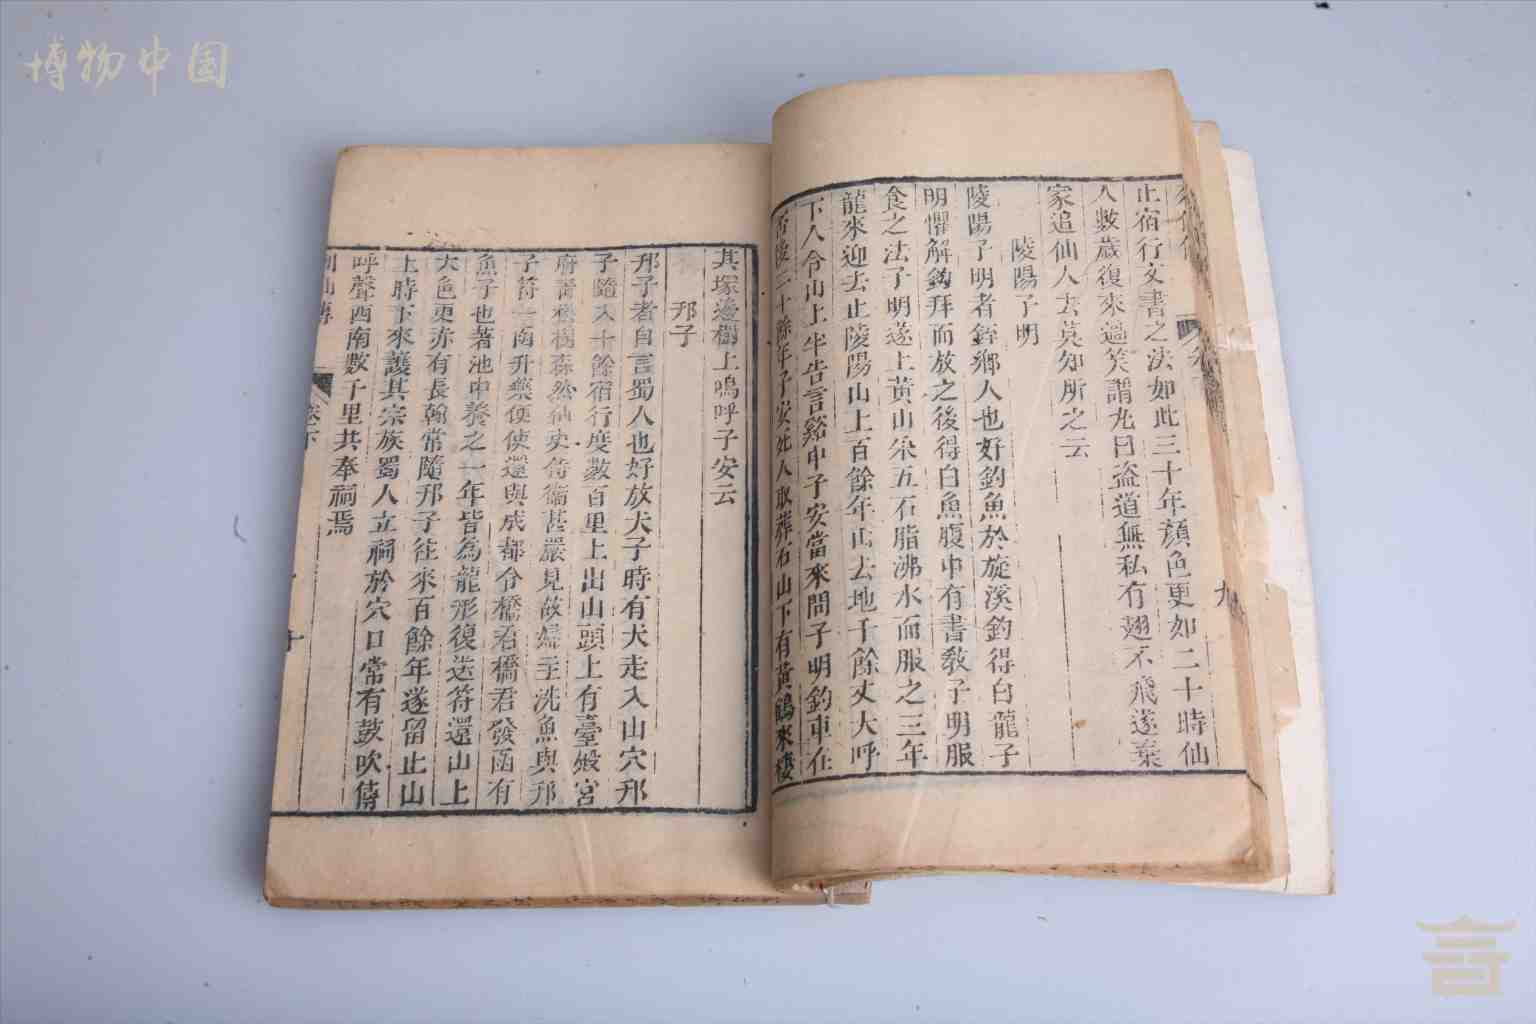 博物中国
止宿行文書之法如此三十年顏色更如二十時仙
人數歲復來過笑謂丸曰盜道無私有翅不飛遂棄
家追仙人去莫知所之云
陵陽子明
陵陽子明者銍鄉人也好釣魚於旋溪釣得白龍子
明懼解鈎拜而放之後得白魚腹中有書教子明服
食之法子明遂上黃山采五石脂沸水而服之三年
龍來迎去止陵陽山上百餘年山去地千餘丈大呼
下人令山上半告言谿中子安當來問子明釣車在
否後二十餘年子安死人取葬石山下有黃鶴來棲
其塚邊樹上鳴呼子安云
邗子
邗子者自言蜀人也好放犬子時有犬走入山穴邗
子隨入十餘宿行度數百里上出山頭上有臺殿宮
府青松樹森然仙吏侍衛甚嚴見故婦主洗魚與邗
子符一函并藥便使還與成都令橋君橋君發函有
魚子也著池中養之一年皆為龍形復送符還山上
犬色更赤有長翰常隨邗子往來百餘年遂留止山
上時下來護其宗族蜀人立祠於穴口常有鼓吹傳
呼聲西南數千里共奉祠焉
列仙傳 卷下 十